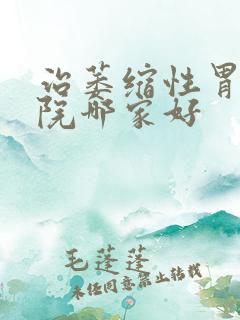 治萎缩性胃
院哪家好
毛蓬蓬
未经同意禁止转载